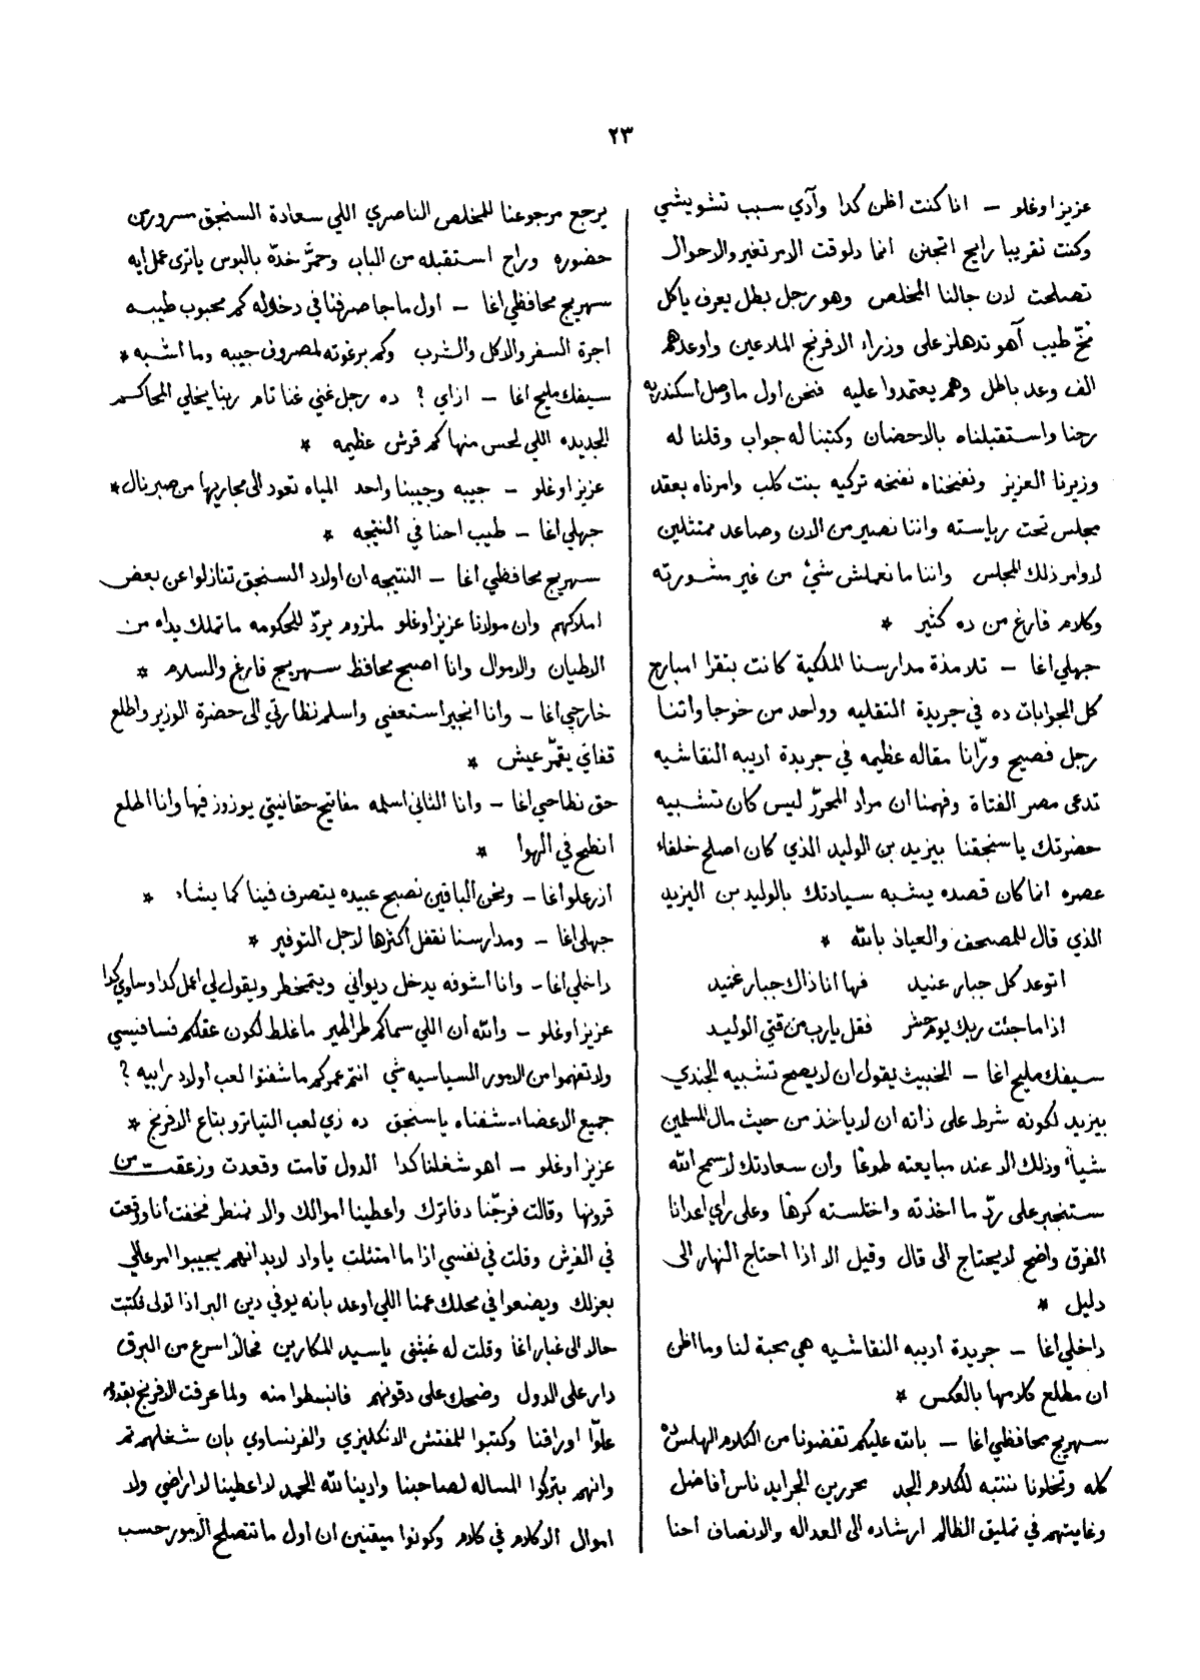 ٢٣
عزيز اوغلو – انا كنت اظن كدا وآدي سبب تشويشي
وكنت تقريبا رايح اتجنن انما دلوقت الامر تغير والاحوال
تصلحت لان جالنا المخلص وهو رجل بطل يعرف ياكل
مخّ طيب آهو تدهلز على وزراء الافرنج الملاعين واوعدهم
الف وعد باطل وهم يعتمدوا عليه فنحن اول ما وصل اسكندريه
رحنا واستقبلناه بالاحضان وكتبنا له جواب وقلنا له
وزيرنا العزيز ونفخناه نفخه تركيه بنت كلب وامرناه بعقد
مجلس تحت رياسته واننا نصير من الان وصاعد ممتثلين
لاوامر ذلك المجلس واننا ما نعملش شيء من غير مشورته
وكلام فارغ من ده كثير *
جهلي اغا – تلامذة مدارسنا الملكية كانت بتقرا امبارح
كل الجوابات ده في جريدة النقليه وواحد من خوجاواتنا
رجل فصيح ورّانا مقاله عظيمه في جريدة اديبه النقاشيه
تدعى مصر الفتاة وفهمنا ان مراد المحرّر ليس كان تشبيه
حضرتك يا سنجقنا بيزيد بن الوليد الذي كان اصلح خلفاء
عصره انما كان قصده يشبه سيادتك بالوليد بن اليزيد
الذي قال للمصحف والعياذ بالله *
اتوعد كل جبار عنيد فها انا ذاك جبار عنيد
اذا ما جئت ربك يوم حشر فقل يا رب مزقني الوليد
سيفك مليح اغا – الخبيث يقول ان لا يصح تشبيه الجندي
بيزيد لكونه شرط على ذاته ان لا ياخذ من حيث مال المسلمين
شيأ وذلك الا عند مبايعته طوعًا وان سعادتك لا سمح الله
ستنجبر على ردّ ما اخذته واختلسته كرهًا وعلى راي اعدانا
الفرق واضح لا يحتاج الى قال وقيل الا اذا احتاج النهار الى
دليل *
داخلي اغا – جريدة اديبه النقاشيه هي محبة لنا وما اظن
ان مطلع كلامها بالعكس *
سهريج محافظي اغا – بالله عليكم تفضونا من الكلام الهلس ده
كله وتخلونا ننتبه للكلام الجد محررين الجرايد ناس افاضل
وغايتهم في تمليق الظالم ارشاده الى العداله والانصاف احنا
يرجع مرجوعنا للمخلص الناصري اللي سعادة السنجق مسرور من
حضوره وراح استقبله من الباب وحمّر خدّه بالبوس ياترى عمل ايه
سهريج محافظي اغا – اول ما جا صرفنا في دخلاله كم محبوب طيبه
اجرة السفر والاكل والشرب وكم برغوته لمصروف جيبه وما اشبه *
سيفك مليح اغا – ازاي ؟ ده رجل غني غنا تام ربنا يخلي المحاكم
الجديده اللي لحس منها كم قرش عظيمه *
عزيز اوغلو – جيبه وجيبنا واحد المياه تعود الى مجاريها من صبر نال *
جهلي اغا – طيب احنا في النتيجه *
سهريج محافظي اغا – النتيجه ان اولاد السنجق تنازلوا عن بعض
املاكهم وان مولانا عزيز اوغلو ملزوم يردّ للحكومه ما تملك يداه من
الاطيان والاموال وانا اصبح محافظ سهريج فارغ والسلام *
خارجي اغا – وانا انجبر استعفي واسلم نظارتي الى حضرة الوزير واطلع
قفاي يقمّر عيش *
حق نطاحي اغا – وانا الثاني اسلمه مفاتيح حقانيتي يوزوز فيها وانا اطلع
انطح في الهوا *
ازرعلو اغا – ونحن الباقين نصبح عبيده يتصرف فينا كما يشاء *
جهلي اغا – ومدارسنا نقفل اكثرها لاجل التوفير *
داخلي اغا – وانا اشوفه يدخل ديواني ويتمخطر ويقول لي اعمل كدا وساوي كدا
عزيز اوغلو – والله ان اللي سماكم طراطير ما غلط لكون عقلكم فسافيسي
ولا تفهموا من الامور السياسيه شي انتم عمركم ما شفتوا لعب اولاد رابيه ؟
جميع الاعضاء – شفناه يا سنجق ده زي لعب التياترو بتاع الافرنج *
عزيز اوغلو – اهو شغلنا كدا الدول قامت وقعدت وزعقت من
قرونها وقالت فرجّنا دفاترك واعطينا اموالك والا ننطر فخفت انا وقعت
في الفرش وقلت في نفسي اذا ما امتثلت ياواد لا بد انهم يجيبوا امر عالي
بعزلك ويضعوا في محلك عمنا اللي اوعد بانه يوفي دين البر اذا تولى فكتبت
حالا الى غبار اغا وقلت له غيثني يا سيد المكارين فحالاً اسرع من البرق
دار على الدول وضحك على دقونهم فانبسطوا منه ولما عرفت الافرنج بقدومه
علوّا اوراقنا وكتبوا للمفتش الانكليزي والفرنساوي بان شغلهم تم
وانهم بتركوا المساله لصاحبنا وادينا لله الحمد لا اعطينا لا اراضي ولا
اموال الا كلام في كلام وكونوا ميقنين ان اول ما تتصلح الامور حسب